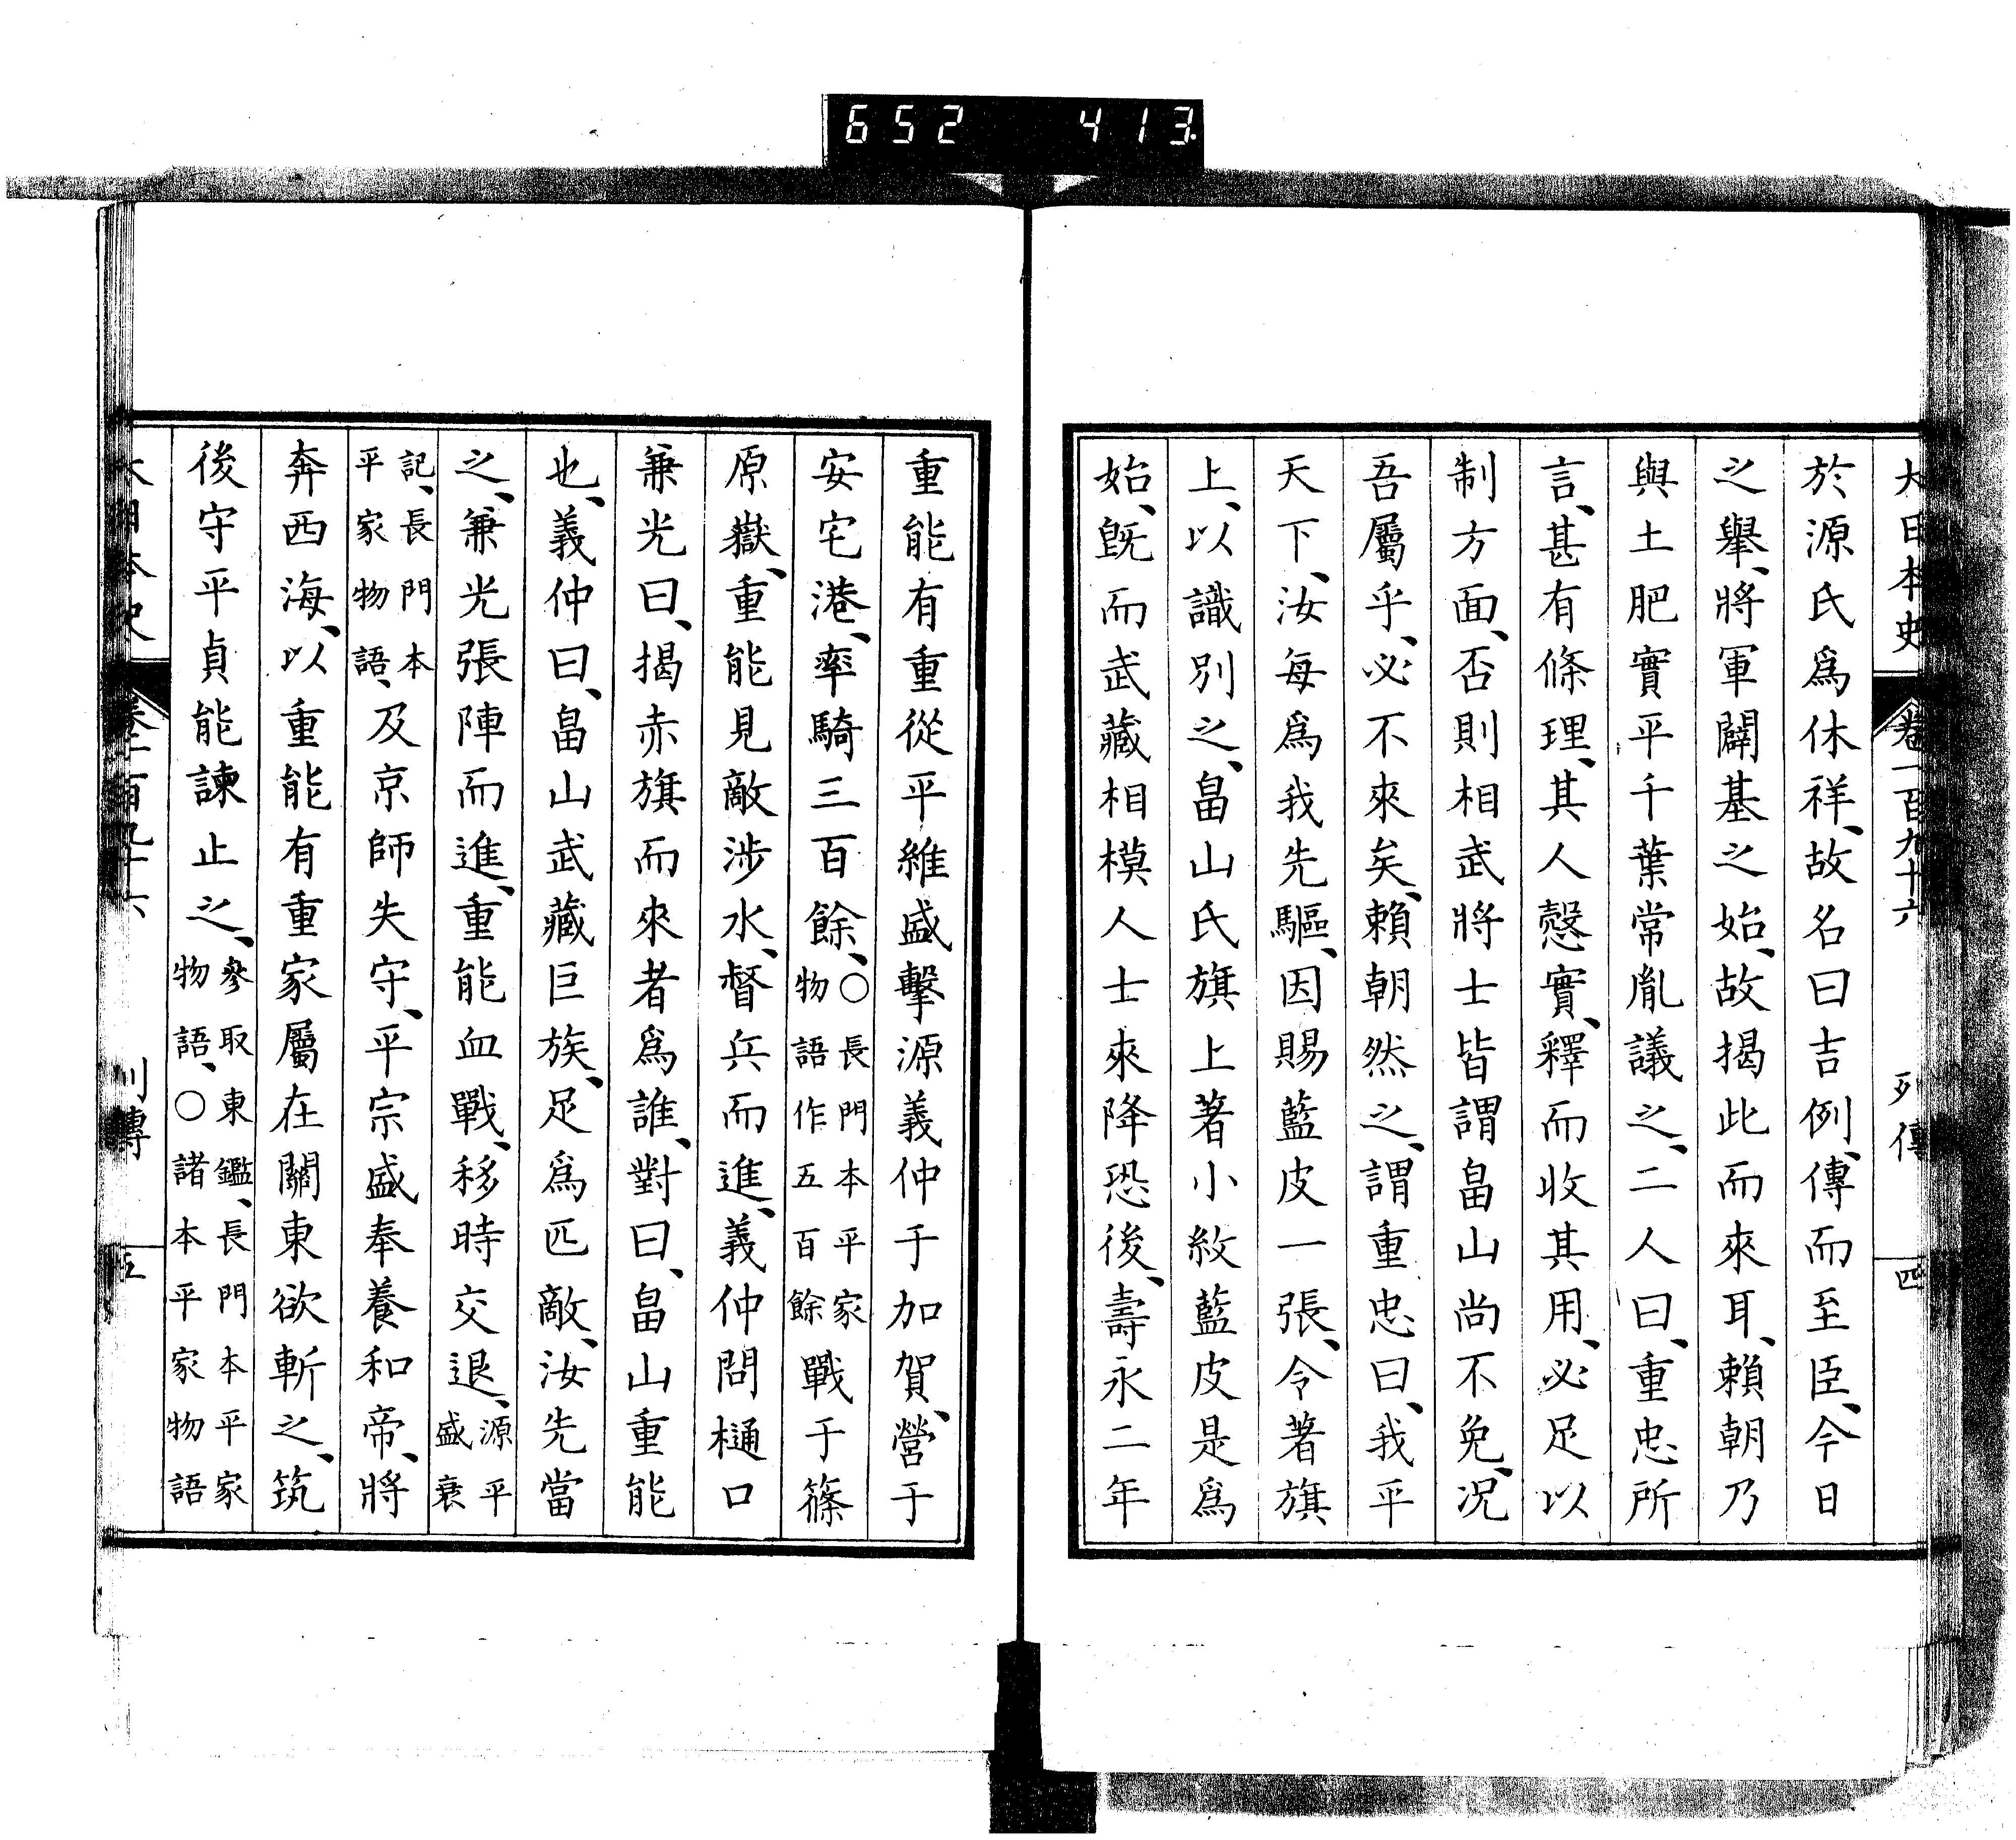 652 413
大日本史 卷一百九十六 列傳 四
於源氏爲休祥、故名曰吉例、傳而至臣、今日
之舉、將軍闢基之始、故揭此而來耳、賴朝乃
與土肥實平千葉常胤議之、二人曰、重忠所
言、甚有條理、其人愨實、釋而收其用、必足以
制方面、否則相武將士皆謂畠山尚不免、况
吾屬乎、必不來矣、賴朝然之、謂重忠曰、我平
天下、汝每爲我先驅、因賜藍皮一張、令著旗
上、以識別之、畠山氏旗上著小紋藍皮是爲
始、既而武藏相模人士來降恐後、壽永二年
重能有重從平維盛擊源義仲于加賀、營于
安宅港、率騎三百餘、〇長門本平家物語作五百餘戰于篠
原嶽、重能見敵涉水、督兵而進、義仲問樋口
兼光曰、揭赤旗而來者爲誰、對曰、畠山重能
也、義仲曰、畠山武藏巨族、足爲匹敵、汝先當
之、兼光張陣而進、重能血戰、移時交退、源平盛衰
記、長門本平家物語、及京師失守、平宗盛奉養和帝、將
奔西海、以重能有重家屬在關東欲斬之、筑
後守平貞能諫止之、參取東鑑、長門本平家物語、〇諸本平家物語
大日本史 卷一百九十六 列傳 五